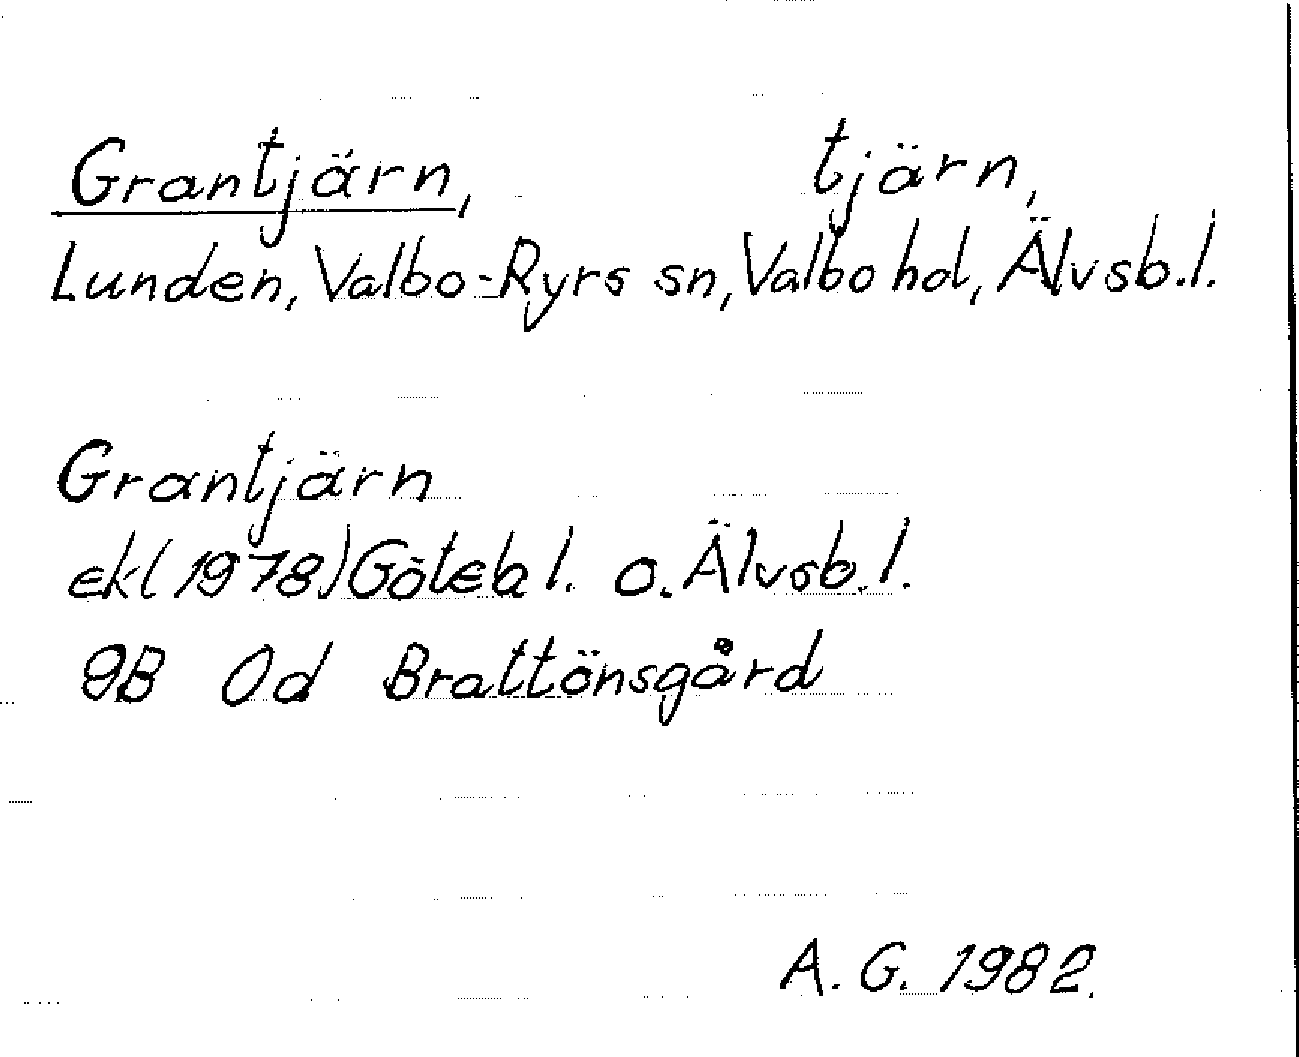 Grantjärn, tjärn,
Lunden, Valbo-Ryrs sn, Valbo hd, Älvsb.l.
Grantjärn
ekl (1978) Göteb l. o. Älvsb.l.
9B 0d Brattönsgård
A. G. 1982.